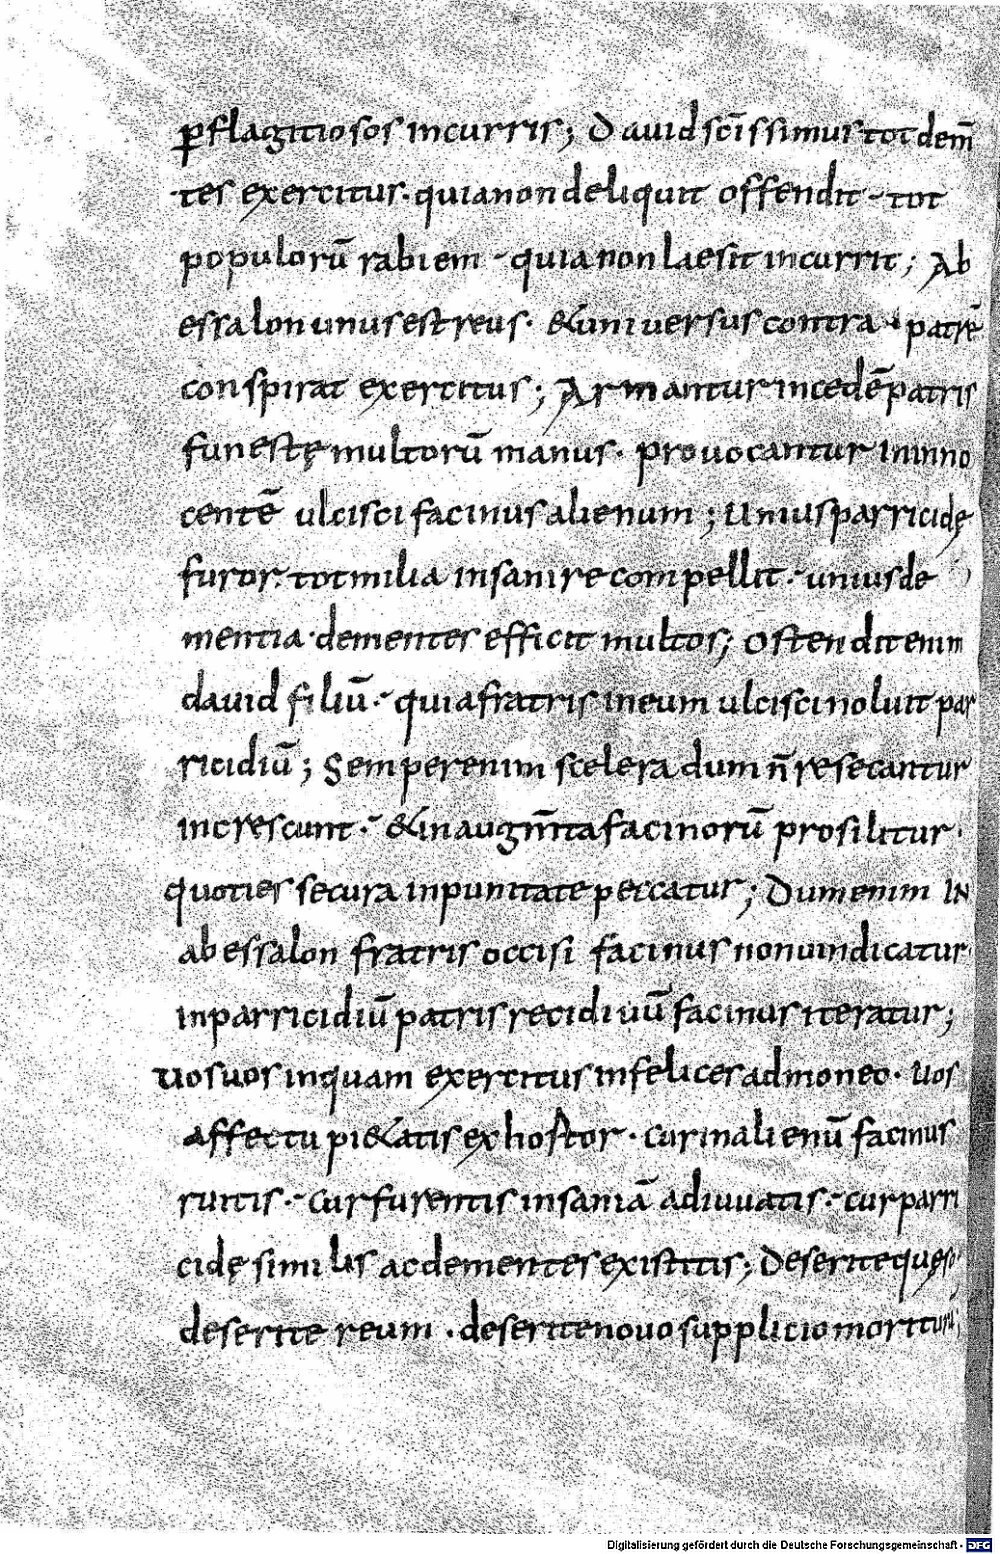 ꝑflagitiosos incurris; Dauid scīssimus tot dem̄
tes exercitus. quia non deliquit offendit. tot
populorū rabiem. quia non laesit incurrit; Ab
essalon unus est reus. & uniuersus contra patrē
conspirat exercitus; Armantur incedē patris
funestę multorū manus. prouocantur in inno
centē ulcisci facinus alienum; Unius parricidę
furor. tot milia insanire compellit. unius de
mentia. dementes efficit multos; Ostendit enim
dauid filiū. quia fratris in eum ulcisci noluit par
ricidiū; Semper enim scelera dum n̄ resecantur
increscunt. & in augm̄ta facinorū prosilitur.
quoties secura inpunitate peccatur; Dum enim IN
abessalon fratris occisi facinus non uindicatur.
in parricidiū patris recidiuū facinus iteratur;
Uos uos inquam exercitus infelices admoneo. Uos
affectu pi&atis exhortor. cur in alienū facinus
ruitis. cur furentis insaniā adiuuatis. cur parri
cidę similis ac dementes existitis; Deserite quęso
deserite reum. deserite nouo supplicio moriturū;
Digitalisierung gefördert durch die Deutsche Forschungsgemeinschaft - DFG